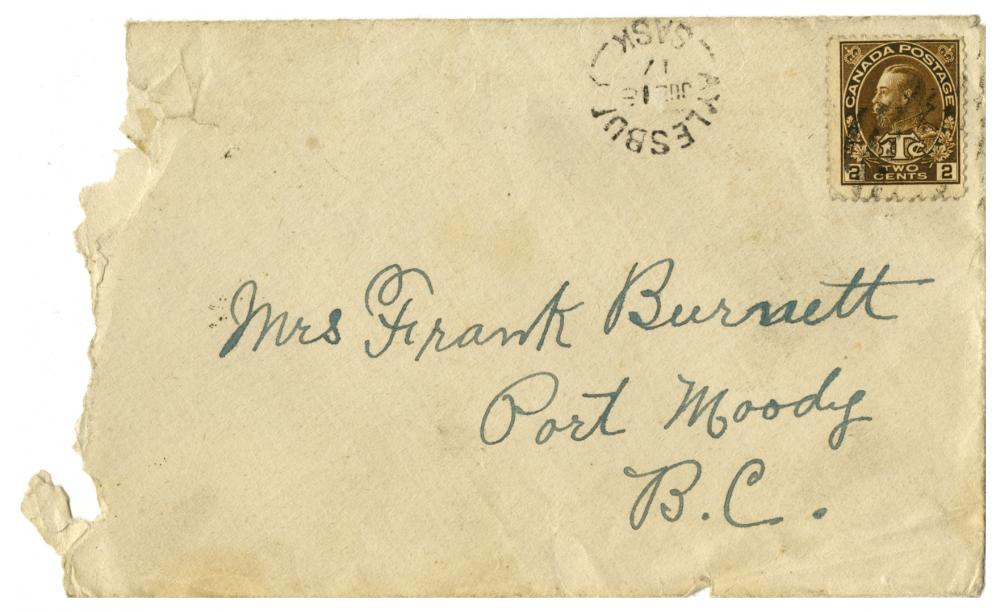 SASK
17
JUL
AYLESBU
CANADA POSTAGE
1Tc
2 TWO CENTS 2
Mrs Frank Burnett
Port Moody
B.C.